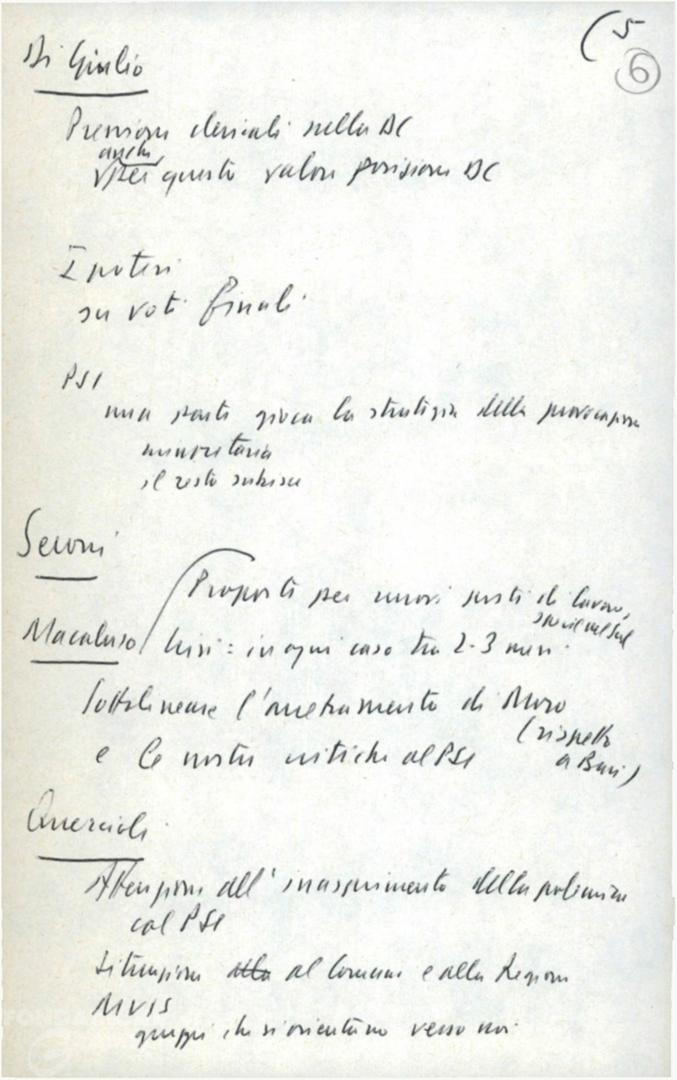 (5
6
Di Giulio
Pressioni clericali sulla DC
anche
per questo valore posizione DC
Ipotesi
su voti finali
PSI
una parte gioca la strategia della provocazione
minoritaria
il resto subisce
Seroni
Proposte per nuovi posti di lavoro,
specie nel Sud
Macaluso
Crisi: in ogni caso tra 2-3 mesi
Sottolineare l'arretramento di Moro
(rispetto
a Bari)
e le nostre critiche al PSI
Quercioli
Attenzione all'inasprimento della polemica
col PSI
Situazione alla al Comune e alla Regione
gruppi che si orientano verso noi